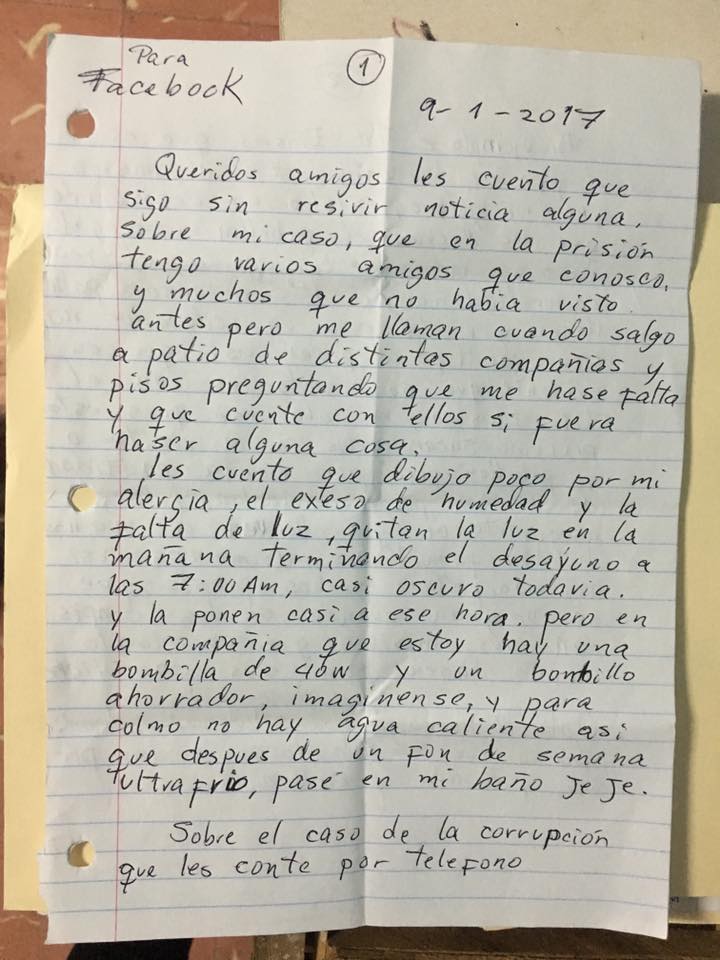 Para
Facebook
1
9-1-2017
Queridos amigos les cuento que
sigo sin resivir noticia alguna,
sobre mi caso, que en la prisión
tengo varios amigos que conosco,
y muchos que no habia visto
antes pero me llaman cuando salgo
a patio de distintas compañias y
pisos preguntando que me hase falta
y que cuente con ellos si fuera
haser alguna cosa.
les cuento que dibujo poco por mi
alergia, el exeso de humedad y la
falta de luz, quitan la luz en la
mañana terminando el desayuno a
las 7:00 Am, casi oscuro todavia.
y la ponen casi a ese hora. pero en
la compañia que estoy hay una
bombilla de 40w y un bombillo
ahorrador, imaginense, y para
colmo no hay agua caliente asi
que despues de un fon de semana
ultrafrio, pasé en mi baño je je.
Sobre el caso de la corrupción
que les conte por telefono